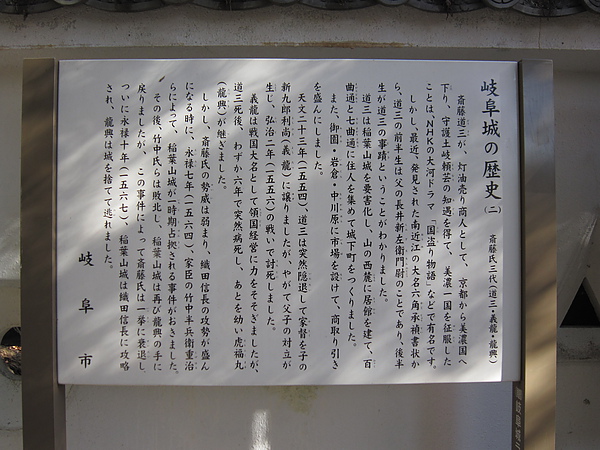 岐阜城の歴史(二) 斎藤氏三代(道三・義龍・龍興)
斎藤道三が、灯油売り商人として、京都から美濃国へ
下り、守護土岐頼芸の知遇を得て、美濃一国を征服した
ことは、NHKの大河ドラマ「国盗り物語」などで有名です。
しかし、最近、発見された南近江の大名六角承禎書状か
ら、道三の前半生は父の長井新左衛門尉のことであり、後半
生が道三の事蹟ということがわかりました。
道三は稲葉山城を要害化し、山の西麓に居館を建て、百
曲通と七曲通に住人を集めて城下町をつくりました。
また、御園・岩倉・中川原に市場を設けて、商取り引き
を盛んにしました。
天文二十三年(一五五四)、道三は突然隠退して家督を子の
新九郎利尚(義龍)に譲りましたが、やがて父子の対立が
生じ、弘治二年(一五五六)の戦いで討死しました。
義龍は戦国大名として領国経営に力をそそぎましたが、
道三死後、わずか六年で突然病死し、あとを幼い虎福丸
(龍興)が継ぎました。
しかし、斎藤氏の勢威は弱まり、織田信長の攻勢が盛ん
になる時に、永禄七年(一五六四)、家臣の竹中半兵衛重治
らによって、稲葉山城が一時期占拠される事件がおきました。
その後、竹中氏らは敗北し、稲葉山城は再び龍興の手に
戻りましたが、この事件によって斎藤氏は一挙に衰退し、
ついに永禄十年(一五六七)、稲葉山城は織田信長に攻略
され、龍興は城を捨て逃れました。
岐阜市